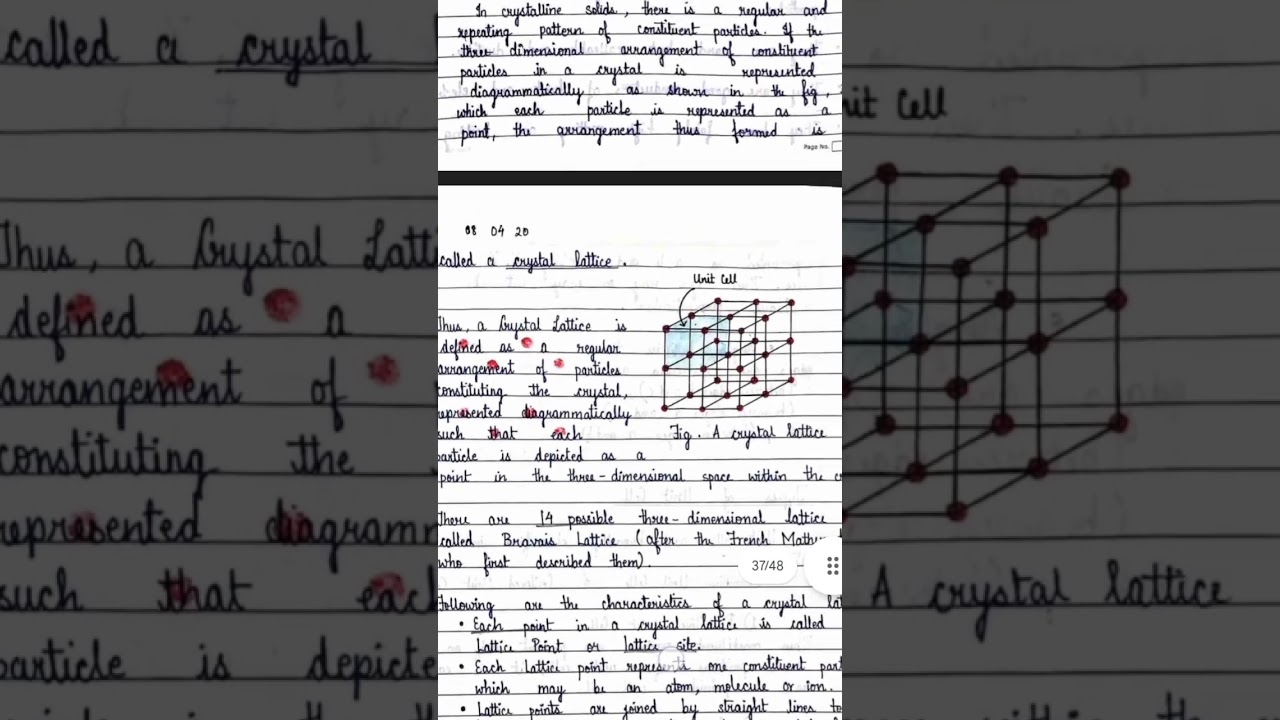 In crystalline solids, there is a regular and
repeating pattern of constituent particles. If the
three dimensional arrangement of constituent
particles in a crystal is represented
diagrammatically as shown in the fig,
which each particle is represented as a
point, the arrangement thus formed is
Page No.
08 04 20
called a crystal lattice.
Unit Cell
Thus, a Crystal Lattice is
defined as a regular
arrangement of particles
constituting the crystal,
represented diagrammatically
such that each
particle is depicted as a
Fig. A crystal lattice
point in the three-dimensional space within the
There are 14 possible three-dimensional lattice
called Bravais Lattice (after the French
who first described them).
37/48
following are the characteristics of a crystal
• Each point in a crystal lattice is called
Lattice Point or lattice site.
• Each Lattice point represents one constituent
which may be an atom, molecule or ion.
• Lattice points are joined by straight lines to
called a crystal
Thus, a Crystal
defined as a
arrangement of
constituting the
such that
particle is
Cell
A crystal lattice